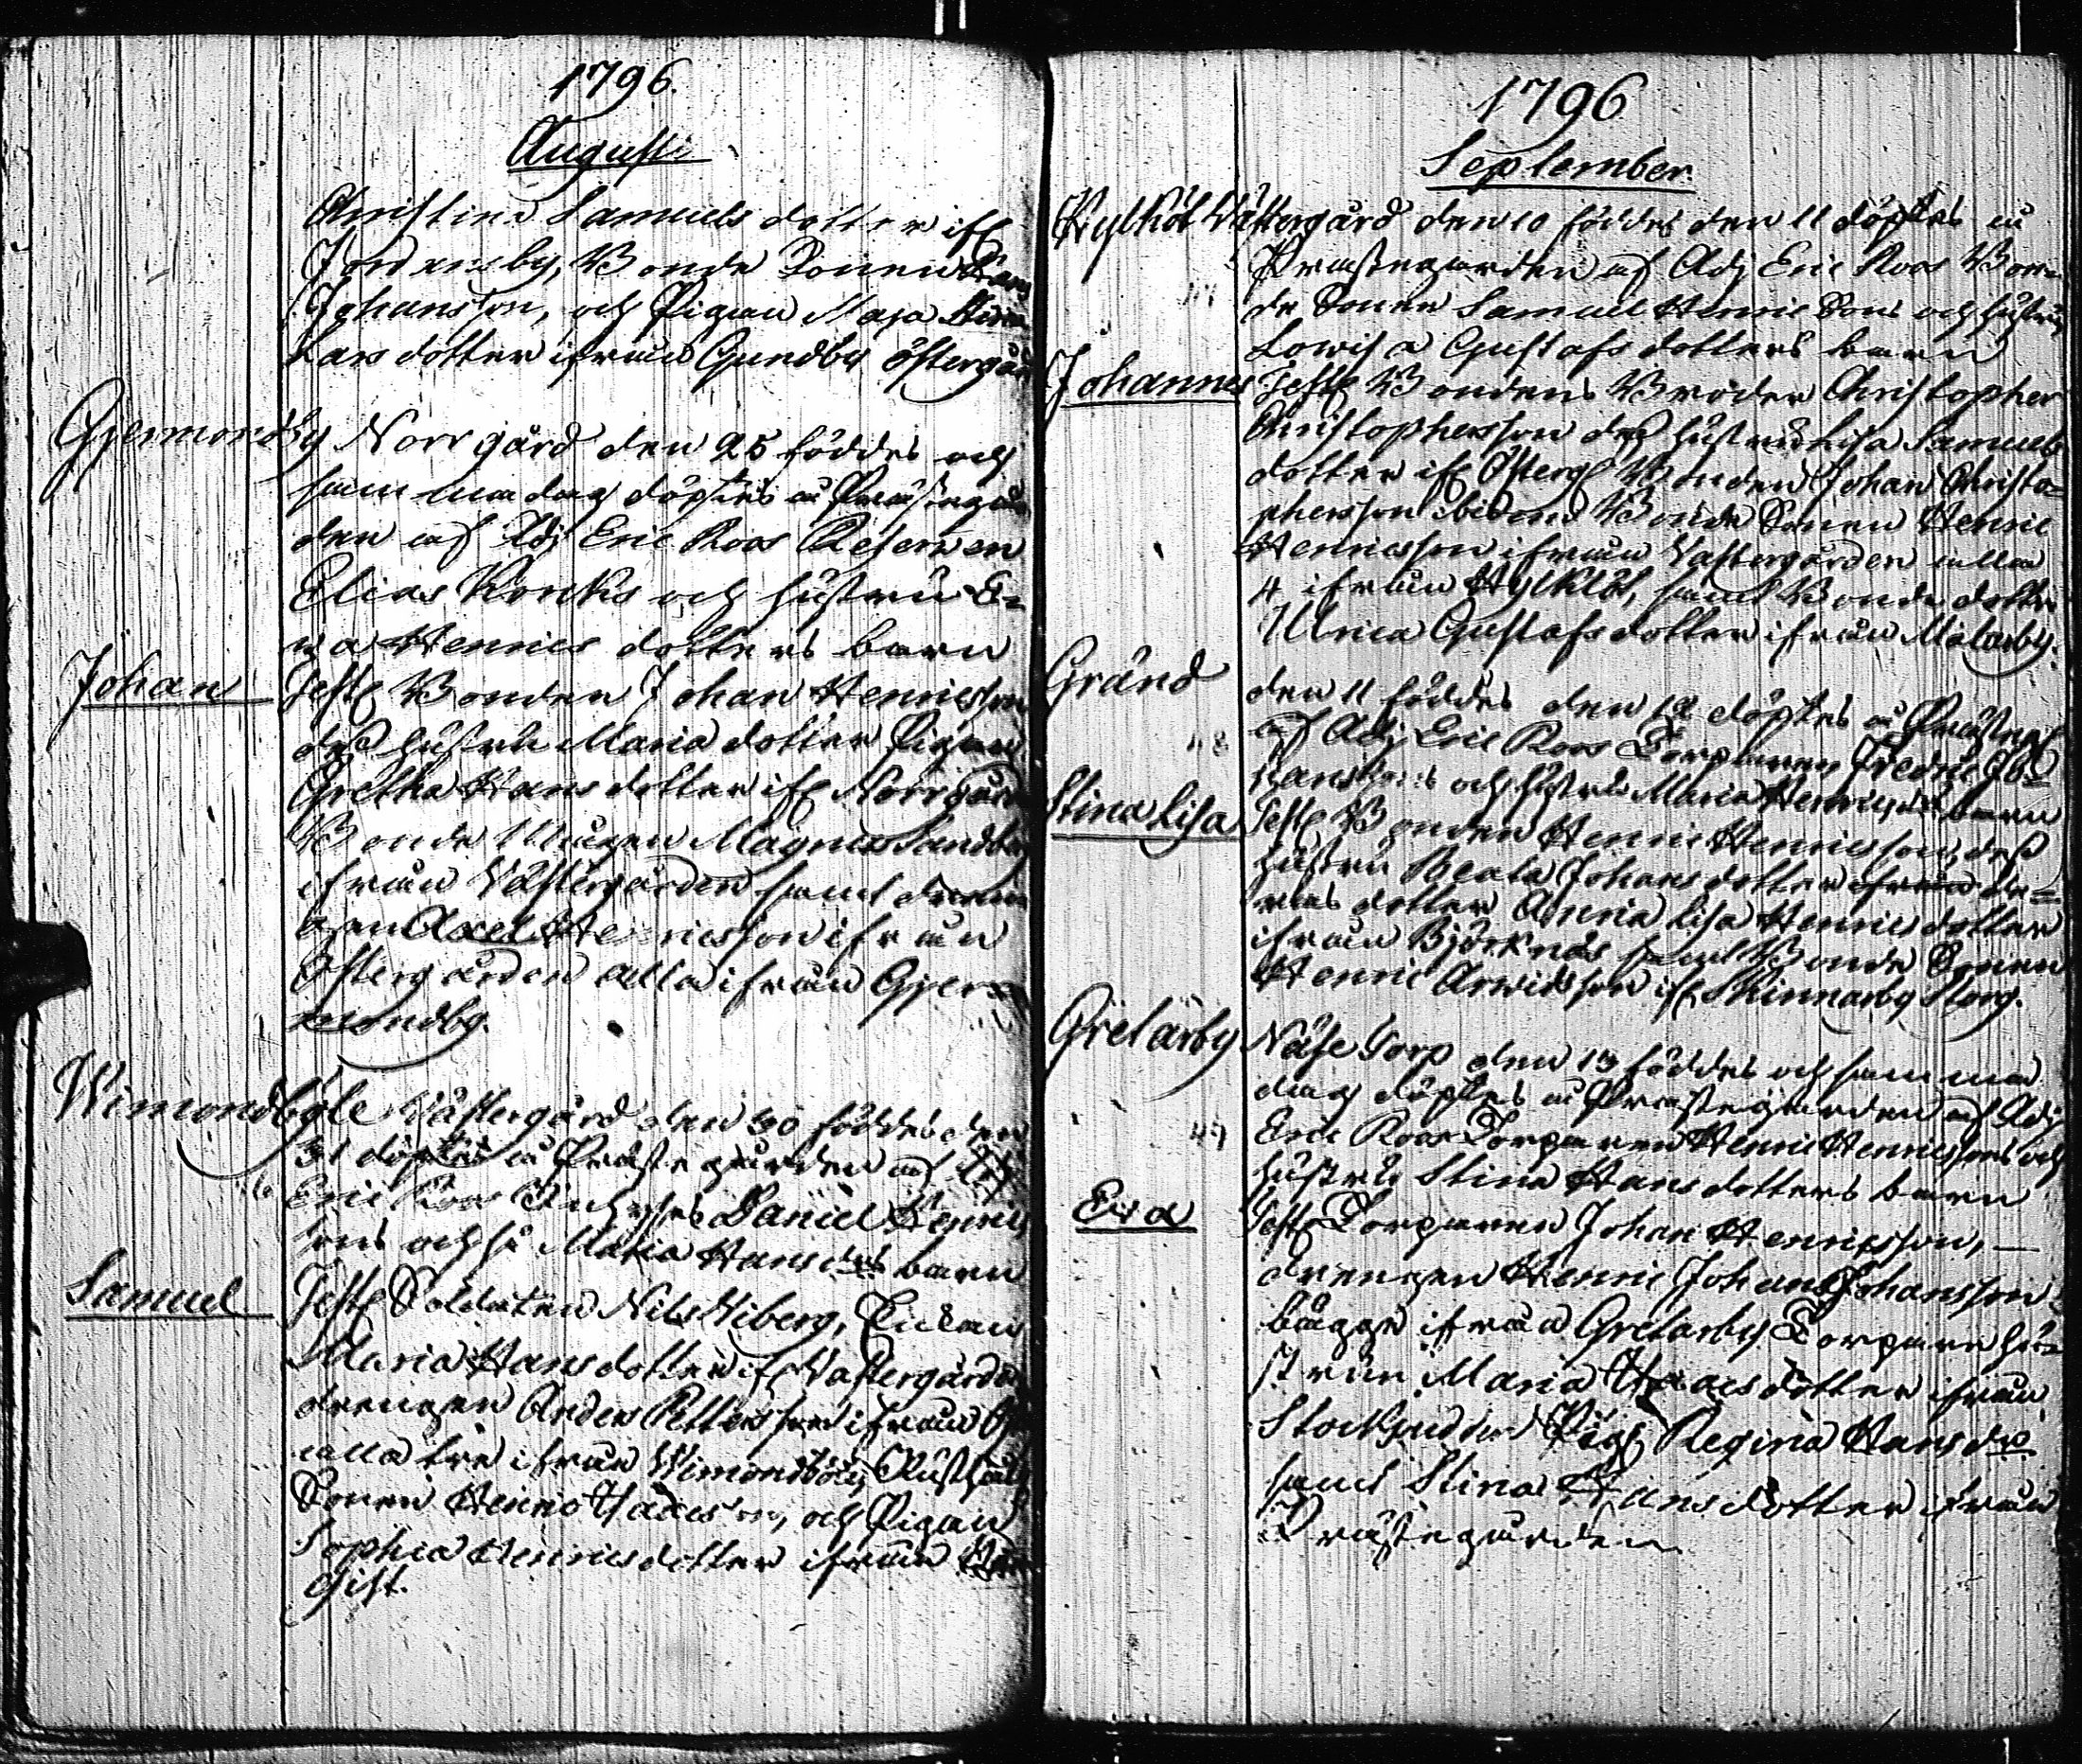 1796.
Augusti
Christina Samuels dotter ifr
Jordansby, Bonde Sonen Lars
Johansson, och Pigan Maja Stina
Lars dotter ifrån Gundby östergård
Gjermondby Norrgård den 25 föddes och
samma dag döptes i Prästegår
den af Adj Eric Roos Reserven
Elias Konks och hustru E-
va Henrics dotters barn
Johan
Test Bonden Johan Henricsson
dess hustru Maria dotter Pigan
Gretha Hans dotter ifr Norrgård
Bonde Mågen Magnus Sandberg
ifrån Västergården samt dren
gen Axel Henricsson ifrån
Östergården alla ifrån Gjer
mondby.
Wimondböle Västergård den 30 föddes den
31 döptes i Prästegården af Adj
Eric Roos Daniel Henrics
sons och hu Maria Hans drs barn
Samuel
Test Soldaten Nils Wiberg, Pigan
Maria Hansdotter ifr Västergården
drengen Anders Pettersson ifrån
alla tre ifrån Wimondböle, Rusthåll
Sonen Henric Isacsson, och Pigan
Sophia Henricsdotter ifrån
gift.
1796
September.
Hylköt Wästergård den 10 föddes den 11 döptes i
Prästegården af Adj Eric Roos Bon
de Sonen Samuel Henric Sons och hustru
Lowisa Gustafs dotters barn
Johannes
Test Bondens Broder Christopher
Christophersson dess hustru Lisa Samuels
dotter ifr Österg Bonden Johan Christo=
phersson ibidem Bonde Sonen Henric
Henricsson ifrån Wästergården alla
4 ifrån Hylköt, samt Bonde dottr
Ulrica Gustafs dotter ifrån Mälarby.
Gränd
den 11 föddes den 12 döptes i Prästeg
48
af Adj Eric Roos Torparen Fredric Jo=
hanssons och hustru Maria Henricsdrs barn
Stina Lisa
Test Bonden Henric Henricsson, dess
hustru Beata Johans dotter ifrån de=
ras dotter Anna Lisa Henrics dotter
ifrån Björknäs samt Bonde Sonen
Henric Arwidsson ifr Skinnarby Storg.
Gretarby Näse Torp den 13 föddes och samma
dag döptes i Prästegården af Adj
49
Eric Roos Torparen Henric Henricssons och
hustru Stina Hans dotters barn
Eva
Test Torparen Johan Henricsson, —
drengen Henric Johan Johansson
bägge ifrån Gretarby Torpare hu=
strun Maria Isacs dotter ifrån
Pig Regina Hans dr
samt Stina Hans dotter ifrån
Prästegården